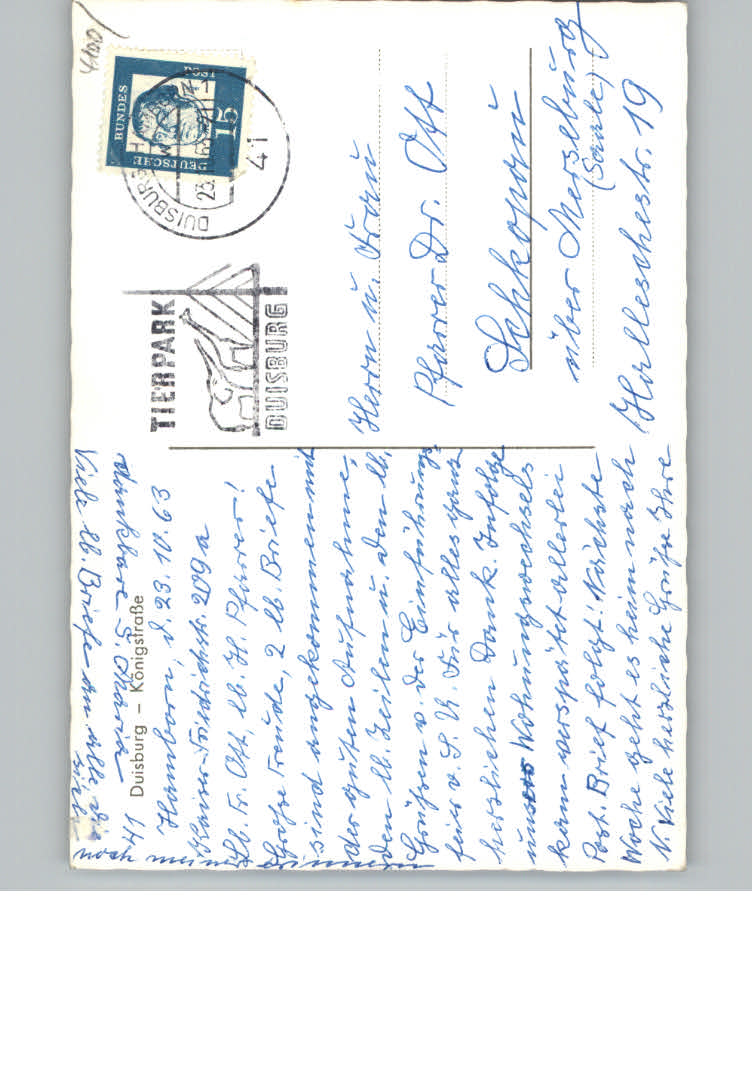 4100
DEUTSCHE BUNDESPOST
15
DUISBURG
23.
41
TIERPARK
DUISBURG
Herrn u. Frau
Pfarrer Dr. Ott
Schkopau
über Merseburg
(Saale)
Hallesche str. 19
Duisburg – Königstraße
41
Hamborn, d. 23.10.63
Kaiser-Friedrichstr. 209a
Lb. Fr. Ott, lb. H. Pfarrer!
Große Freude, 2 lb. Briefe
sind angekommen mit
der guten Aufnahme,
den lb. Zeilen u. den lb.
Grüßen v. der Einführungs
feier v. S. U. Für alles ganz
herzlichen Dank. Infolge
unseres Wohnungswechsels
kam verspätet allerlei
Post. Brief folgt! Nächste
Woche geht es heim nach
N. Viele herzliche Grüße Ihre
dankbare S. Maria
Viele lb Briefe an alle die
sich
noch meiner erinnern